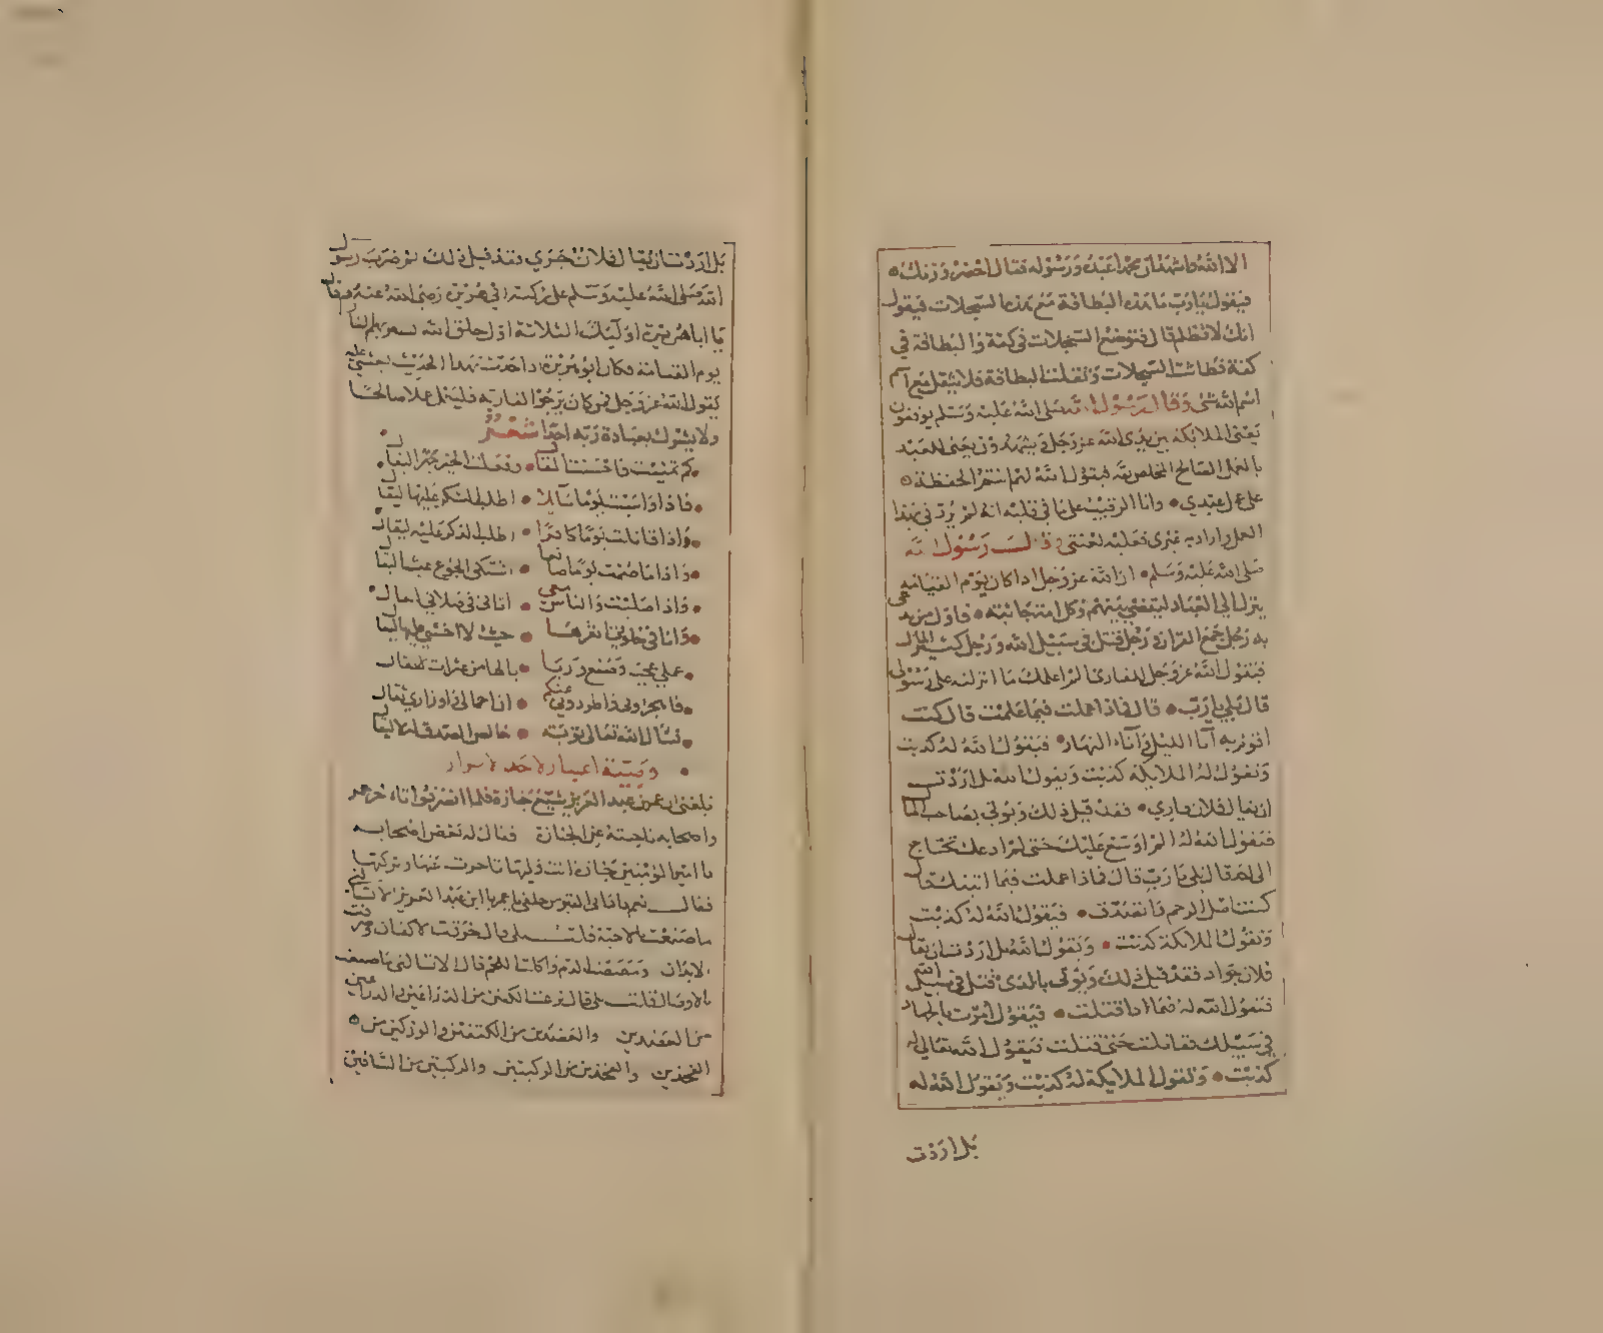 الا الله واشهد ان محمدا عبده ورسوله فقال احضر وزنك
فيقول يا رب ما هذه البطاقة مع هذه السجلات فيقول
انك لا تظلم قال فتوضع السجلات في كفة والبطاقة في
كفة فطاشت السجلات وثقلت البطاقة فلا يثقل مع
اسم الله شي وقال رسول الله صلى الله عليه وسلم يوتفون
يعني الملايكة بين يدي الله عز وجل ويشهدون يعني للعبد
بالعمل الصالح المخلص لله فيقول الله لهم انتم الحفظة
على عمل عبدي وانا الرقيب على ما في قلبه انه لم يرد في بهذا
العمل واراد به غيري فعليه لعنتي وقال رسول الله
صلى الله عليه وسلم ان الله عز وجل اذا كان يوم القيامه
ينزل الي العباد ليقضي بينهم وكل امة جاثية فاول من يدعى
به رجل جمع القران ورجل قتل في سبيل الله ورجل كثير المال
فيقول الله عز وجل للقاري الم اعلمك ما انزلته على رسولي
قال بلي يا رب قال فماذا عملت فيما علمت قال كنت
اقوم به آنا الليل وآناء النهار فيقول الله له كذبت
وتقول له الملايكة كذبت ويقول الله بل اردت
ان يقال فلان قاري فقد قيل ذلك ويوتي بصاحب المال
فيقول الله له الم اوسع عليك حتى لم ادعك تحتاج
الى احد قال بلي يا رب قال فماذا عملت فيما اتيتك قال
كنت اصل الرحم واتصدق فيقول الله له كذبت
وتقول الملايكة كذبت ويقول الله بل اردت ان يقال
فلان جواد فقد قيل ذلك ويوتي بالذي قتل في سبيل الله
فيقول الله له فيما ذا قتلت فيقول امرت بالجهاد
في سبيلك فقاتلت حتى قتلت فيقول الله تعالي له
كذبت وتقول الملايكة له كذبت ويقول الله له
بل اردت
بل اردت ان يقال فلان جري فقد قيل ذلك ثم ضرب رسول
الله صلى الله عليه وسلم على ركبته ابي هريرة رضي الله عنه وقال
يا ابا هريرة اوليك الثلاثة اول خلق الله تسعر بهم النار
يوم القيامة فكان ابو هريرة اذا حدث بهذا الحديث يغشي عليه
يقول الله عز وجل فمن كان يرجو القا ربه فليعمل عملا صالحا
ولا يشرك بعبادة ربه احدا شعر
كم تمنيت فاحسنت المقال وفعلت الخير
فاذا واسيت يوما سايلا اطلب الشكر عليها ليقال
واذا قاتلت يوما كافرا اطلب الذكر عليه ليقال
واذا ما صمت يوما صايما اشتكي الجوع عبثا ليقال
واذا صليت والناس معي
وانا في خلوتي انقرها حيث لا اخشي عليها ليقال
عملي عجب وصنع وريا يالها من عثرات لا تقال
انا حمالي اوزاري ثقال
نسال الله تعالى توبة خالص الصدق لا ليقال
وصية
بلغني ان عمر بن عبد العزيز شيع جنازة فلما انصرفوا تاخر عمر
واصحابه ناحية عن الجنازة فقال له بعض اصحابه
يا امير المؤمنين جنازة انت وليها تاخرت عنها وتركتها
فقال نعم ناداني القبر من خلفي يا عمر يا ابن عبد العزيز الا تسالني
ما صنعت بالاحبة قلت بلي قال خرقت الاكفان ومزقت
الابدان ومصصت الدم واكلت اللحم قال الا تسالني ما صنعت
بالاوصال قلت بلي قال نزعت الكفين من الذراعين والذراعين
من العضدين والعضدين من الكتفين والوركين من
الفخذين والفخذين من الركبتين والركبتين من الساقين